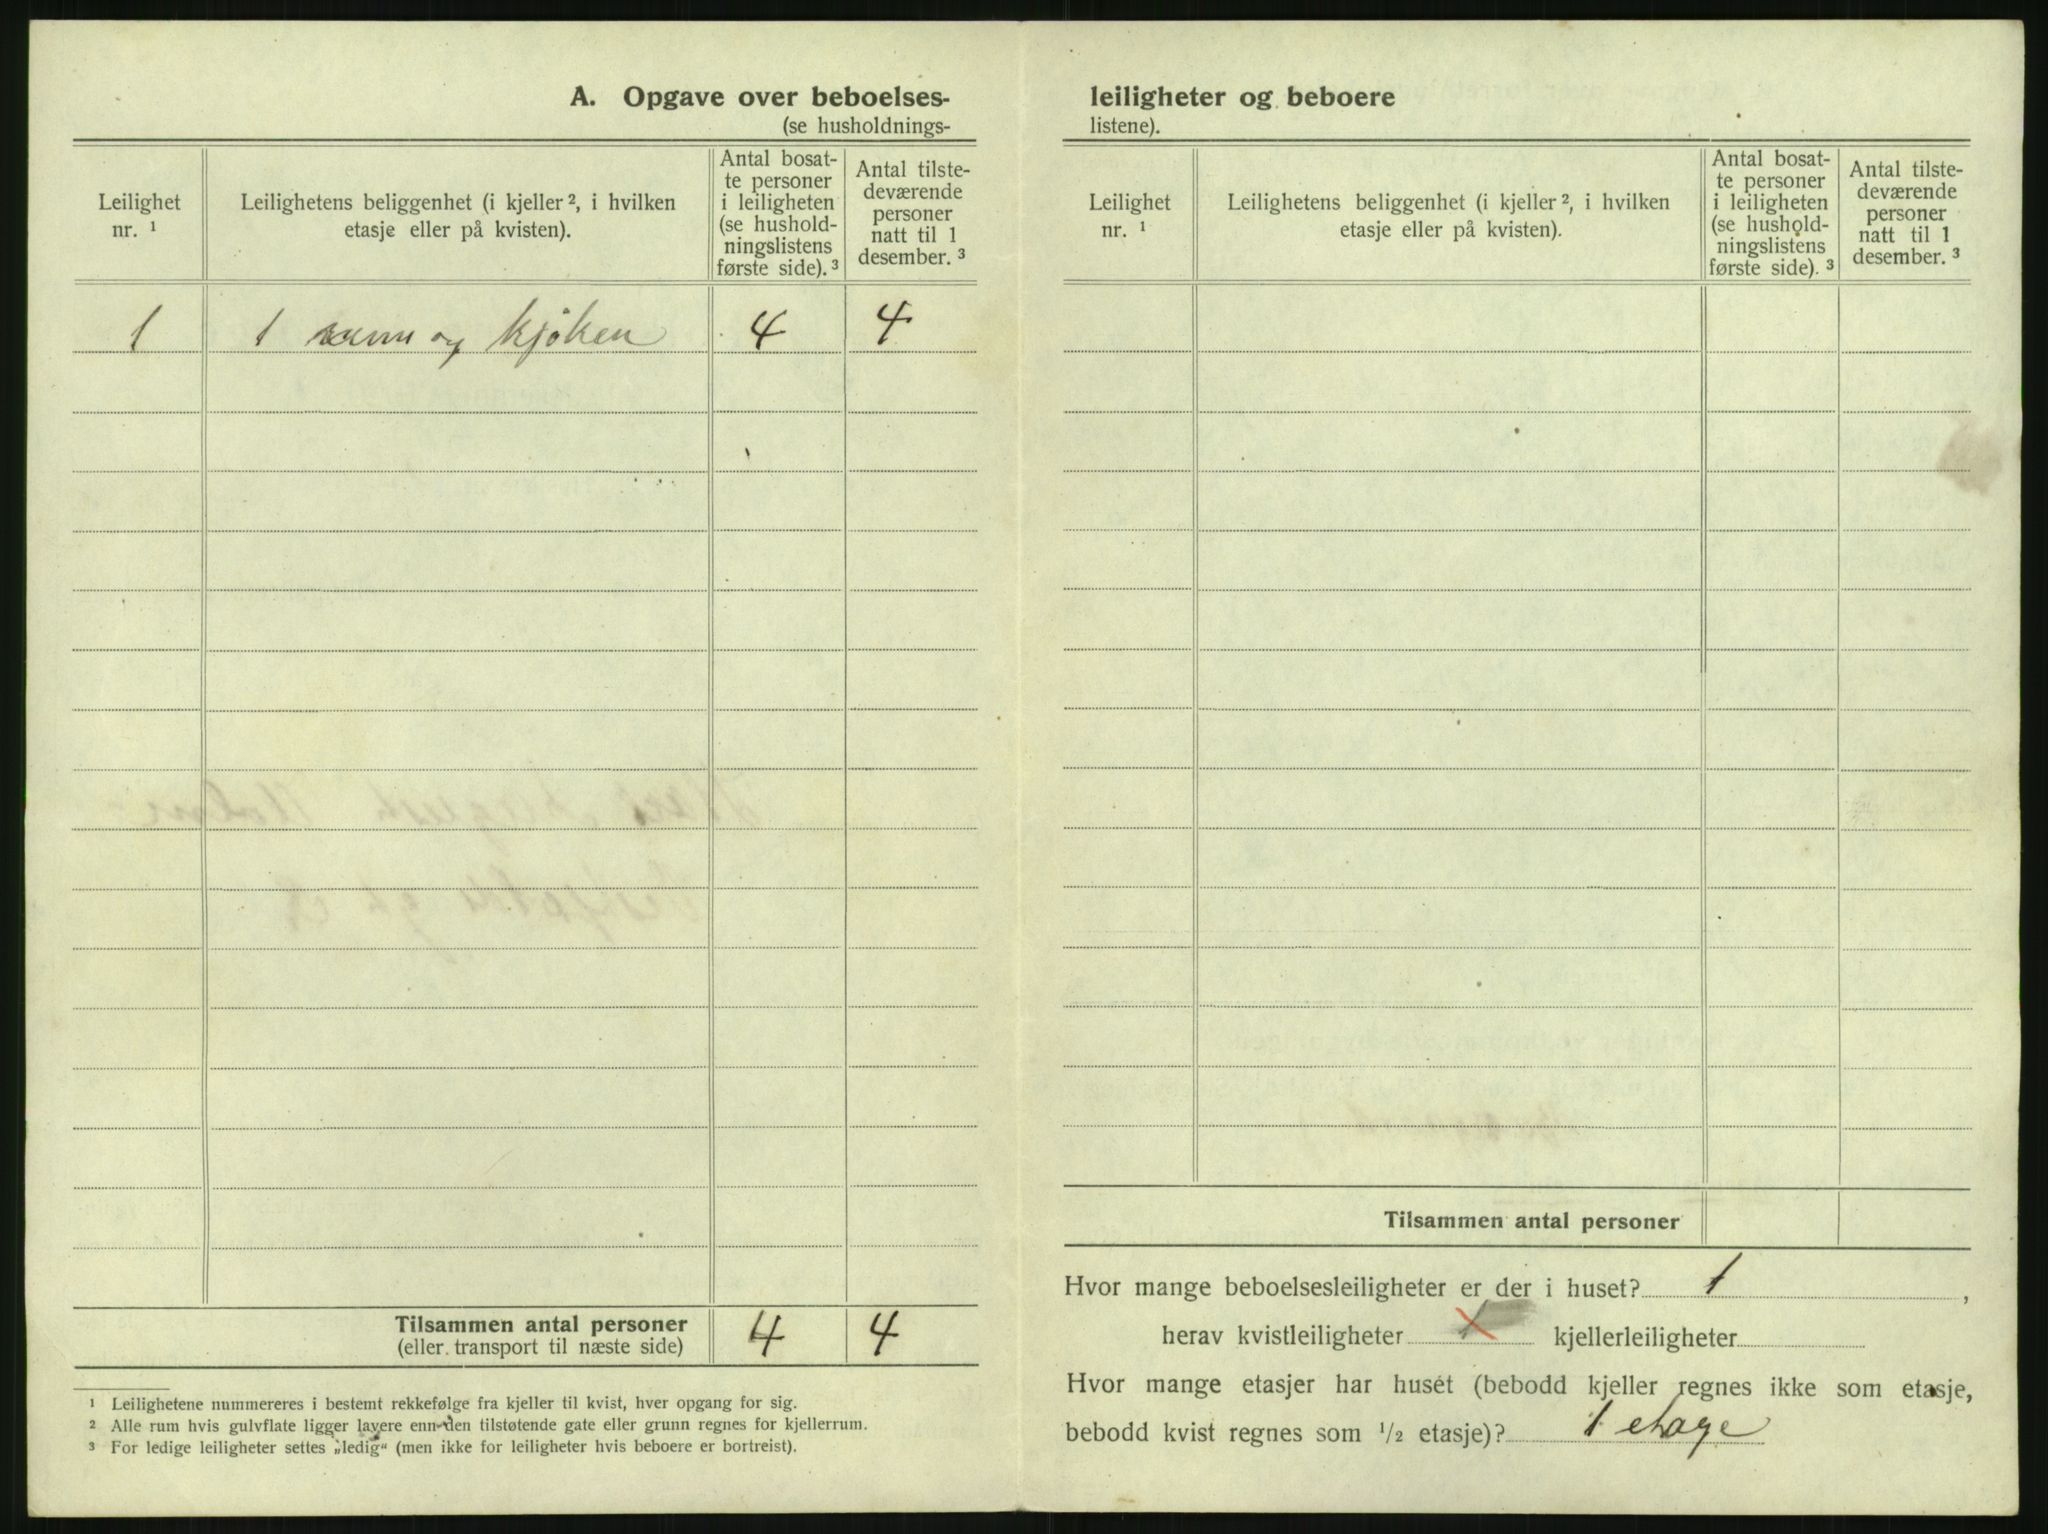 A. Opgave over beboelses-
(se husholdnings-
Leilighet
nr. 1
Leilighetens beliggenhet (i kjeller 2, i hvilken
etasje eller på kvisten).
Antal bosat-
te personer
i leiligheten
(se hushold-
ningslistens
første side). 3
Antal tilste-
deværende
personer
natt til 1
desember. 3
1 1 rum og kjøken 4 4
Tilsammen antal personer 4 4
(eller transport til næste side)
1 Leilighetene nummereres i bestemt rekkefølge fra kjeller til kvist, hver opgang for sig.
2 Alle rum hvis gulvflate ligger lavere enn den tilstøtende gate eller grunn regnes for kjellerrum.
3 For ledige leiligheter settes „ledig“ (men ikke for leiligheter hvis beboere er bortreist).
leiligheter og beboere
listene).
Leilighet
nr. 1
Leilighetens beliggenhet (i kjeller 2, i hvilken
etasje eller på kvisten).
Antal bosat-
te personer
i leiligheten
(se hushold-
ningslistens
første side). 3
Antal tilste-
deværende
personer
natt til 1
desember. 3
Tilsammen antal personer
Hvor mange beboelsesleiligheter er der i huset? 1,
herav kvistleiligheter kjellerleiligheter
Hvor mange etasjer har huset (bebodd kjeller regnes ikke som etasje,
bebodd kvist regnes som 1/2 etasje)? 1 etage